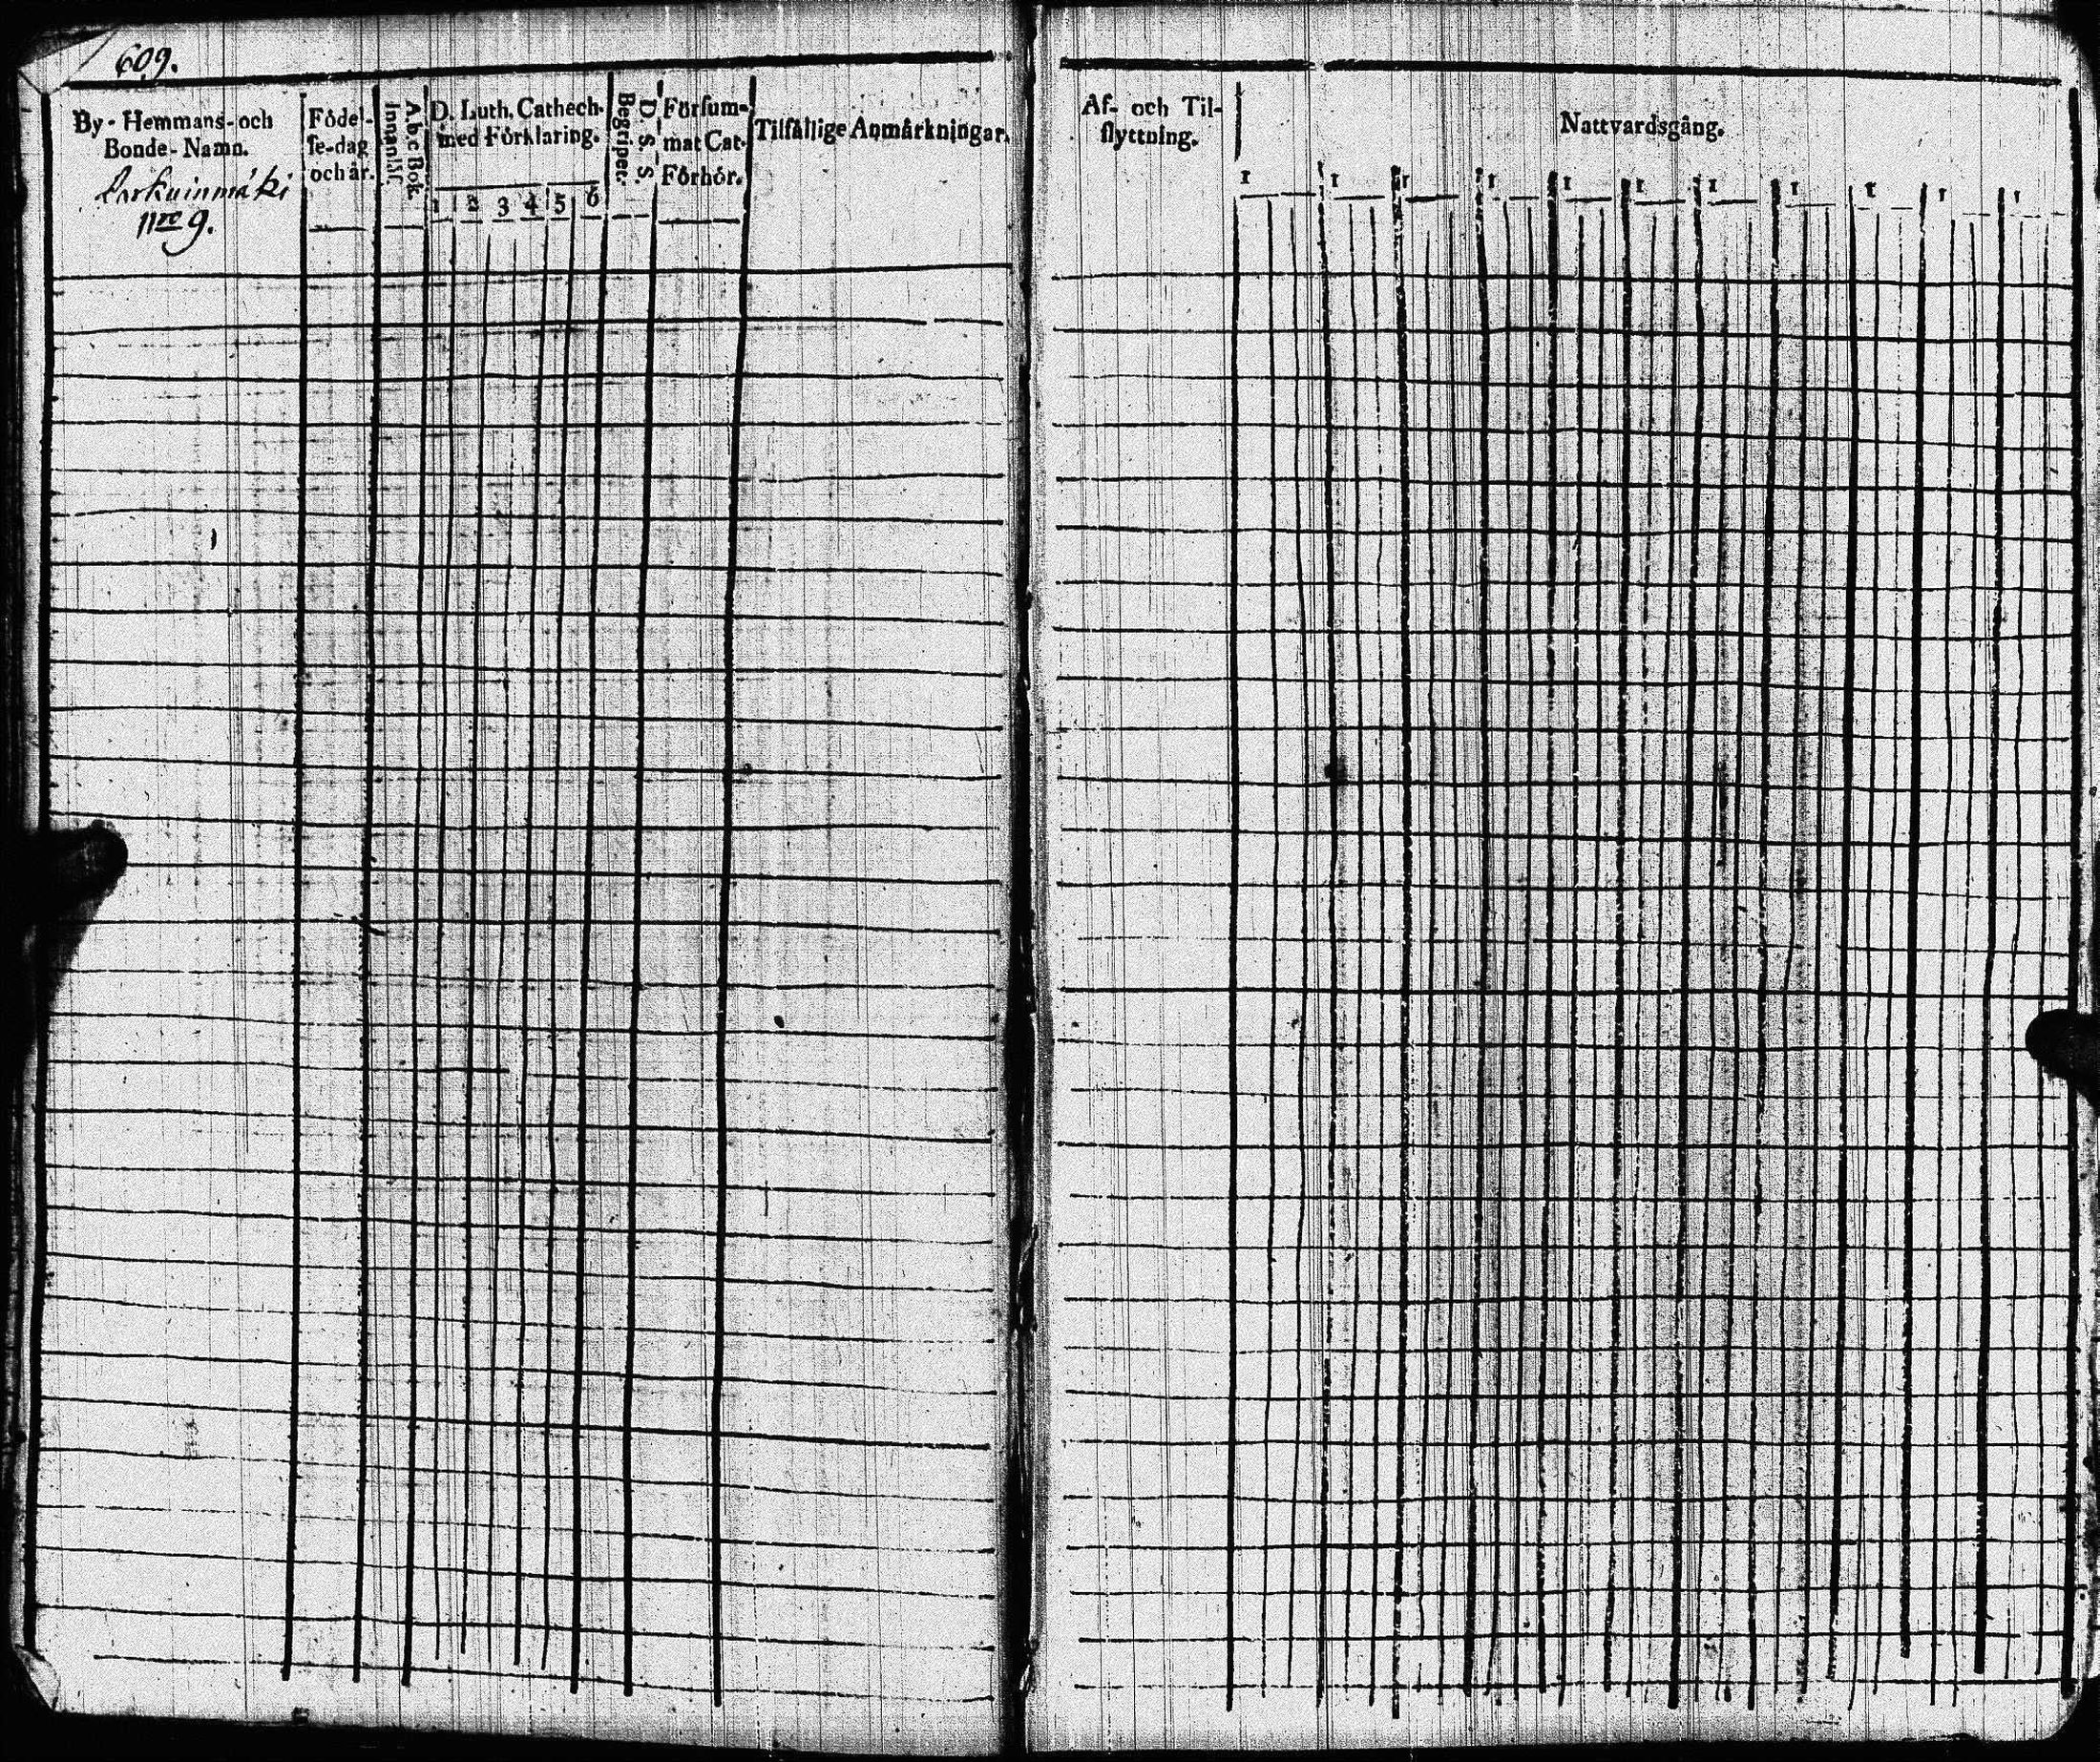 609.
By- Hemmans- och
Bonde- Namn.
nro 9.
Födel-
ſe-dag
och år.
Abc Bok.
Innanläſ.
D. Luth. Cathech.
med Förklaring.
1 2 3 4 5 6
D. S. S.
Begripet.
Förſum-
mat Cat.
Förhör.
Tilfällige Anmärkningar.
Af- och Til-
flyttning.
Nattvardsgång.
1 1 1 1 1 1 1 1 1 1 1